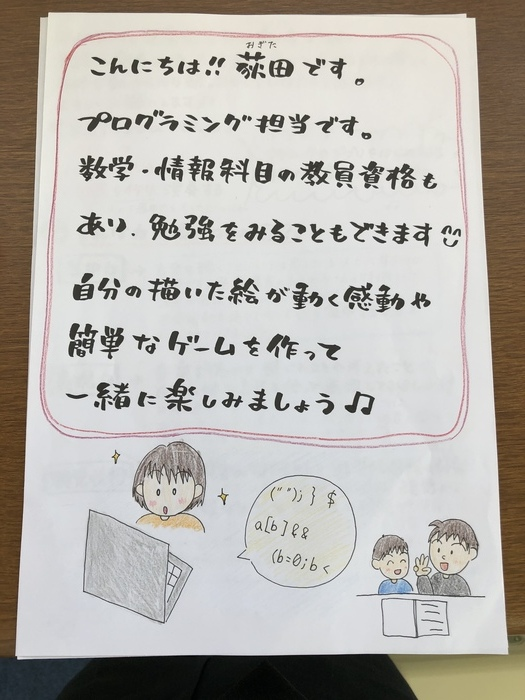 おぎた
こんにちは!! 荻田です。
プログラミング担当です。
数学・情報科目の教員資格も
あり、勉強をみることもできます
自分の描いた絵が動く感動や
簡単なゲームを作って
一緒に楽しみましょう♫
("");} $
a[b]&&
(b=0;b<